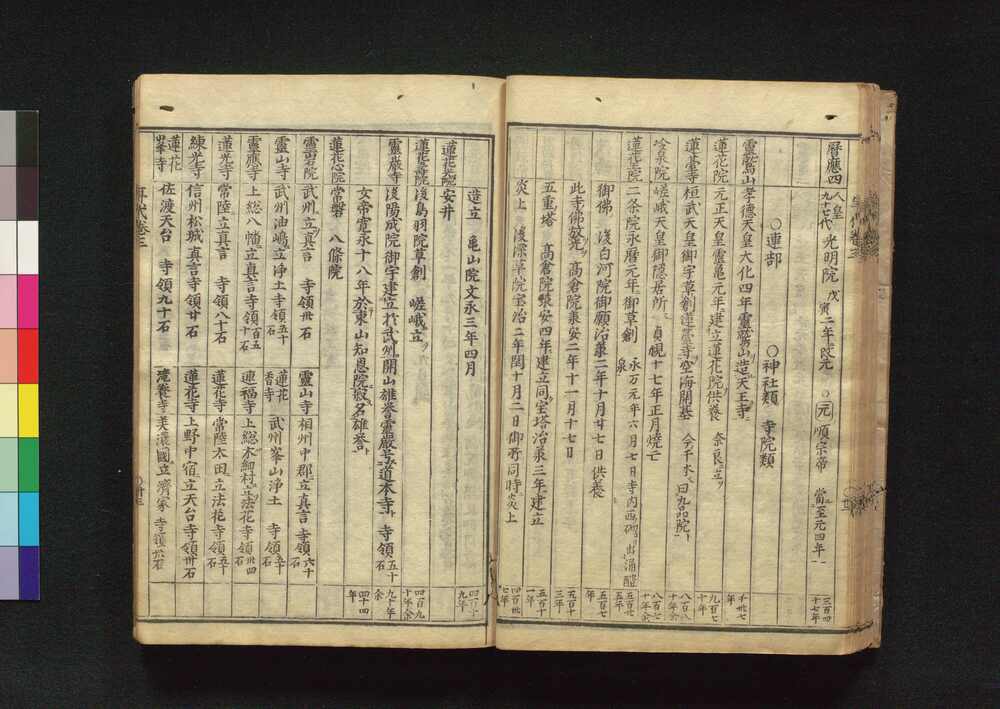 暦應四 人皇九十七代 光明院 戊寅 二年改元 ○元 順宗帝 當至元四年 三百四十七年
○連部 ○神社類 寺院類
靈鷲山 孝德天皇大化四年靈鷲山造天王寺 千卅七年
蓮花院 元正天皇靈亀元年建立蓮花院供養 奈良立 九百七十年
蓮臺寺 桓武天皇御宇草創蓮臺寺空海開基 今千本曰九品院 八百八十年余
冷泉院 嵯峨天皇御隠居所 貞観十七年正月焼亡 八百七十年余
蓮花王院 二条院永暦元年御草創 永万元年六月七日寺内西砌 出涌醴泉 五百廿五年
御佛 後白河院御願治承二年十月廿七日供養 五百七年
此寺佛放光 高倉院承安二年十一月十七日 五百十三年
五重塔 高倉院承安四年建立同宝塔治承三年建立 五百十一年
炎上 後深草院宝治二年閏十月二日御所同時炎上 四百卅七年
造立 亀山院文永三年四月
蓮花光院 安井
蓮花峯院 後鳥羽院草創 嵯峨立 四百九十年余
靈巌寺 後陽成院御宇建立於武州開山雄誉靈巌号道本寺 寺領五十石 九十年余
女帝寛永十八年於東山知恩院寂名雄誉 四十四年
蓮花心院 常磐 八條院
靈岩院 武州立真言 寺領卅石 靈山寺 相州中郡立真言 寺領六十石
靈山寺 武州油嶋立浄土寺領五十石 蓮花香寺 武州峯山浄土 寺領五十石
靈應寺 上総八幡立真言寺領百五十石 連福寺 上総木細村立法花寺領卅四石
蓮光寺 常陸立真言 寺領八十石 蓮花寺 常陸太田立法花寺領五十石
練光寺 信州松城真言寺領廿石 蓮花寺 上野中宿立天台寺領卅石
蓮花峯寺 佐渡天台 寺領九十石 滝養寺 美濃國立 濟家 寺領卅石
年代巻三